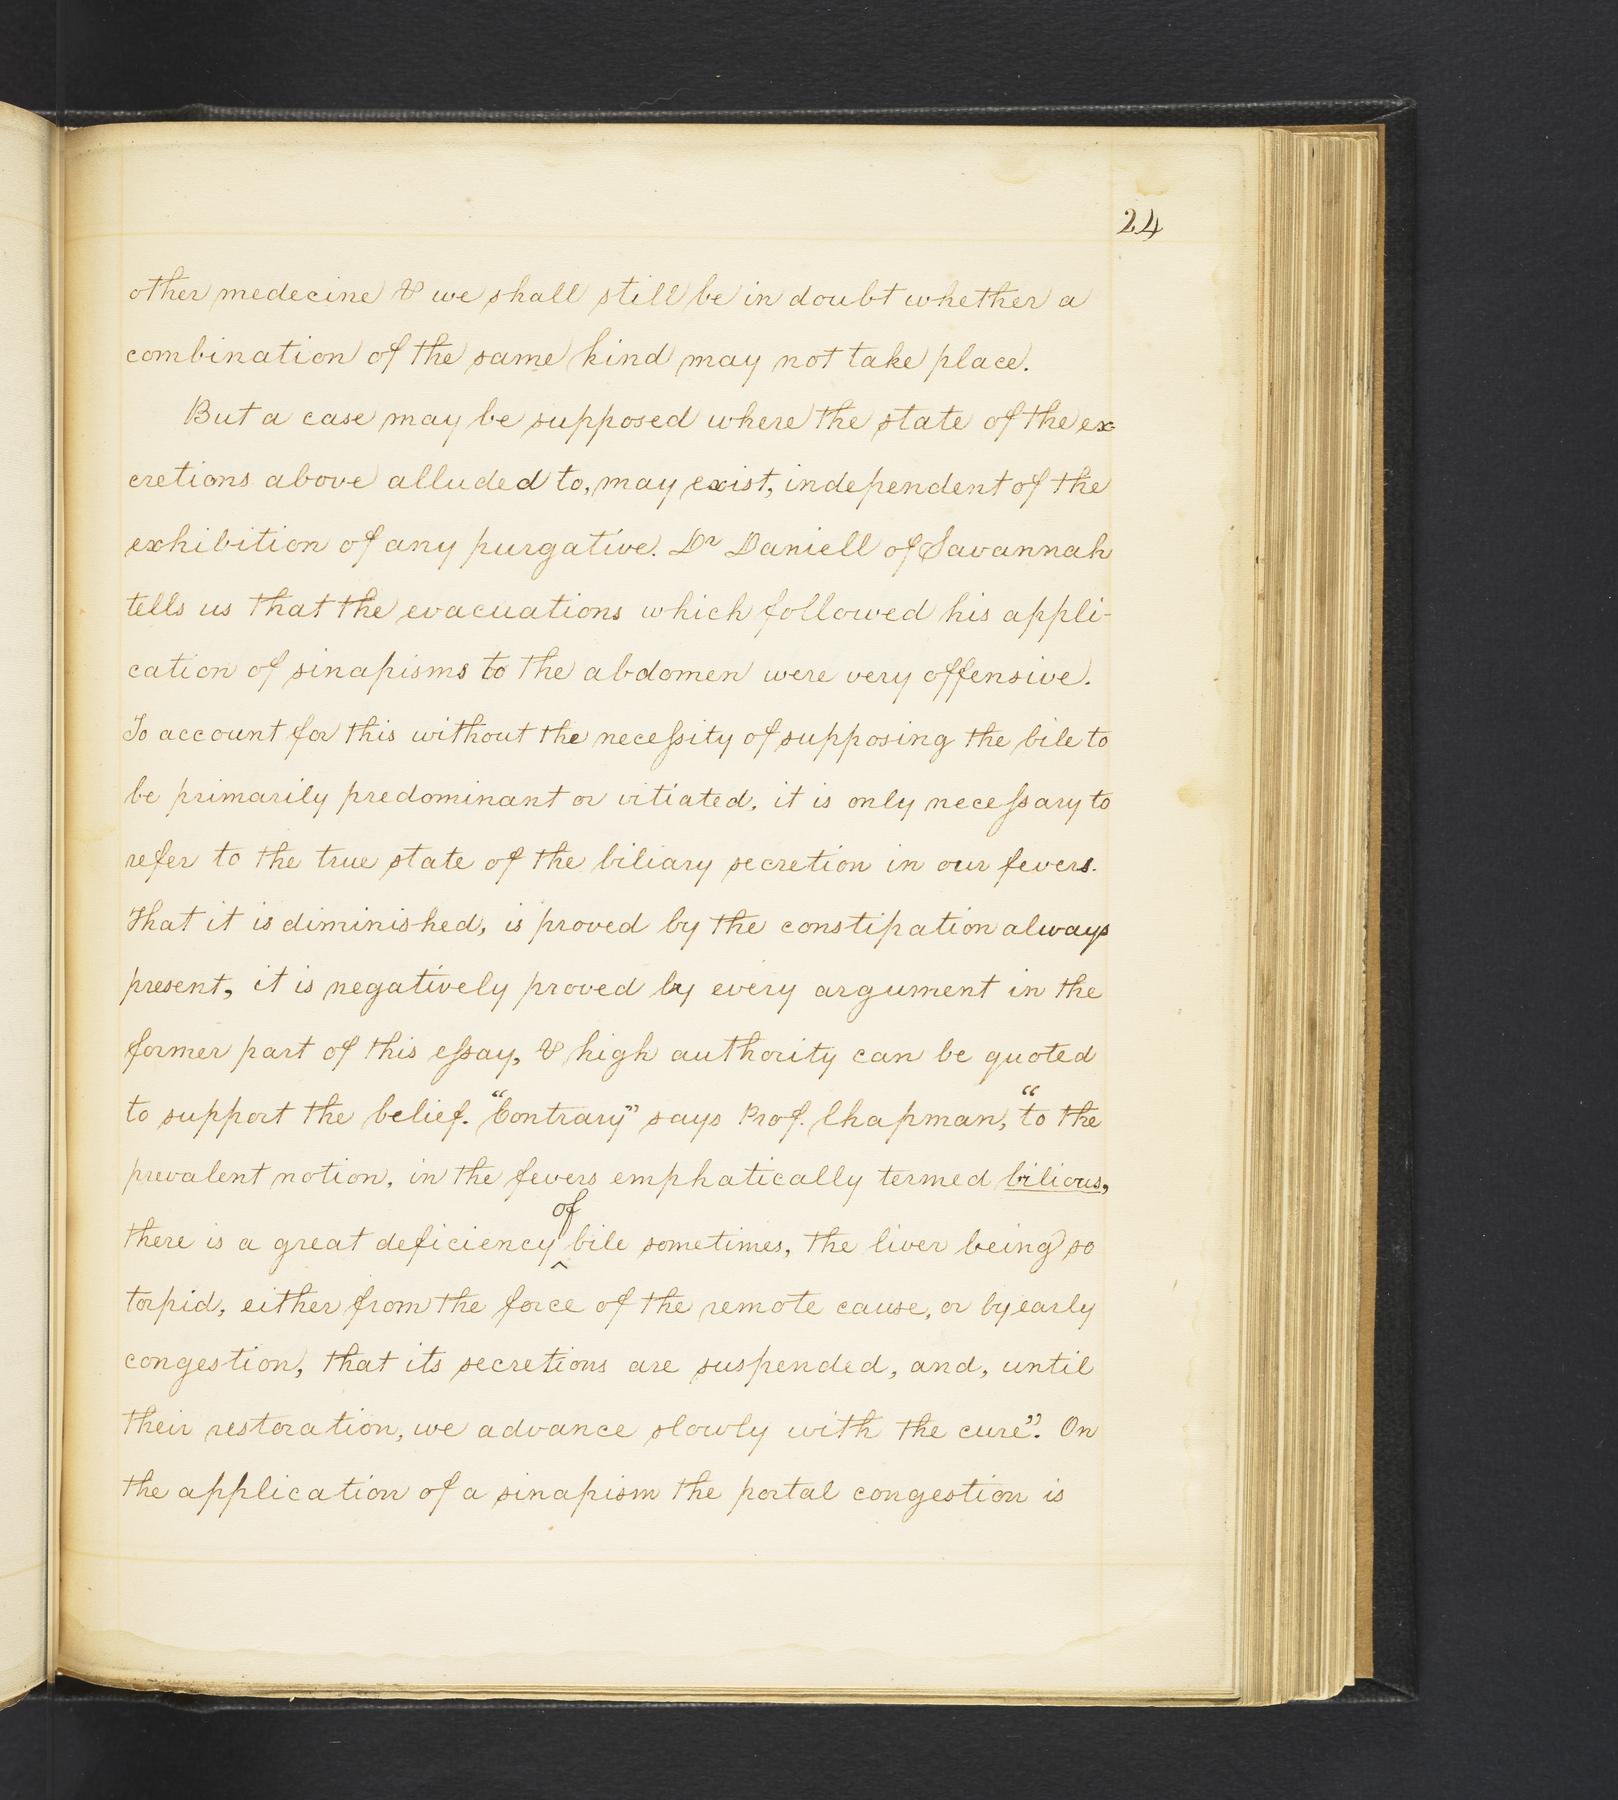 24
other medecine & we shall still be in doubt whether a
combination of the same kind may not take place.
But a case may be supposed where the state of the ex-
cretions above alluded to, may exist, independent of the
exhibition of any purgative. Dr Daniell of Savannah
tells us that the evacuations which followed his appli-
cation of sinapisms to the abdomen were very offensive.
To account for this without the necessity of supposing the bile to
be primarily predominant or vitiated, it is only necessary to
refer to the true state of the biliary secretion in our fevers.
That it is diminished, is proved by the constipation always
present, it is negatively proved by every argument in the
former part of this essay, & high authority can be quoted
to support the belief. "Contrary" says Prof. Chapman, "to the
prevalent notion, in the fevers emphatically termed bilious,
there is a great deficiency of bile sometimes, the liver being so
torpid, either from the force of the remote cause, or by early
congestion, that its secretions are suspended, and, until
their restoration, we advance slowly with the cure". On
the application of a sinapism the portal congestion is